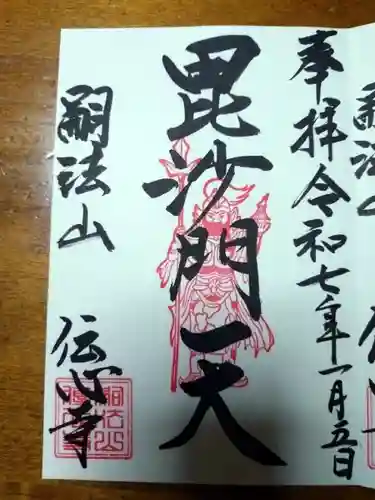 奉拝令和七年一月五日
毘沙門天
嗣法山
伝心寺